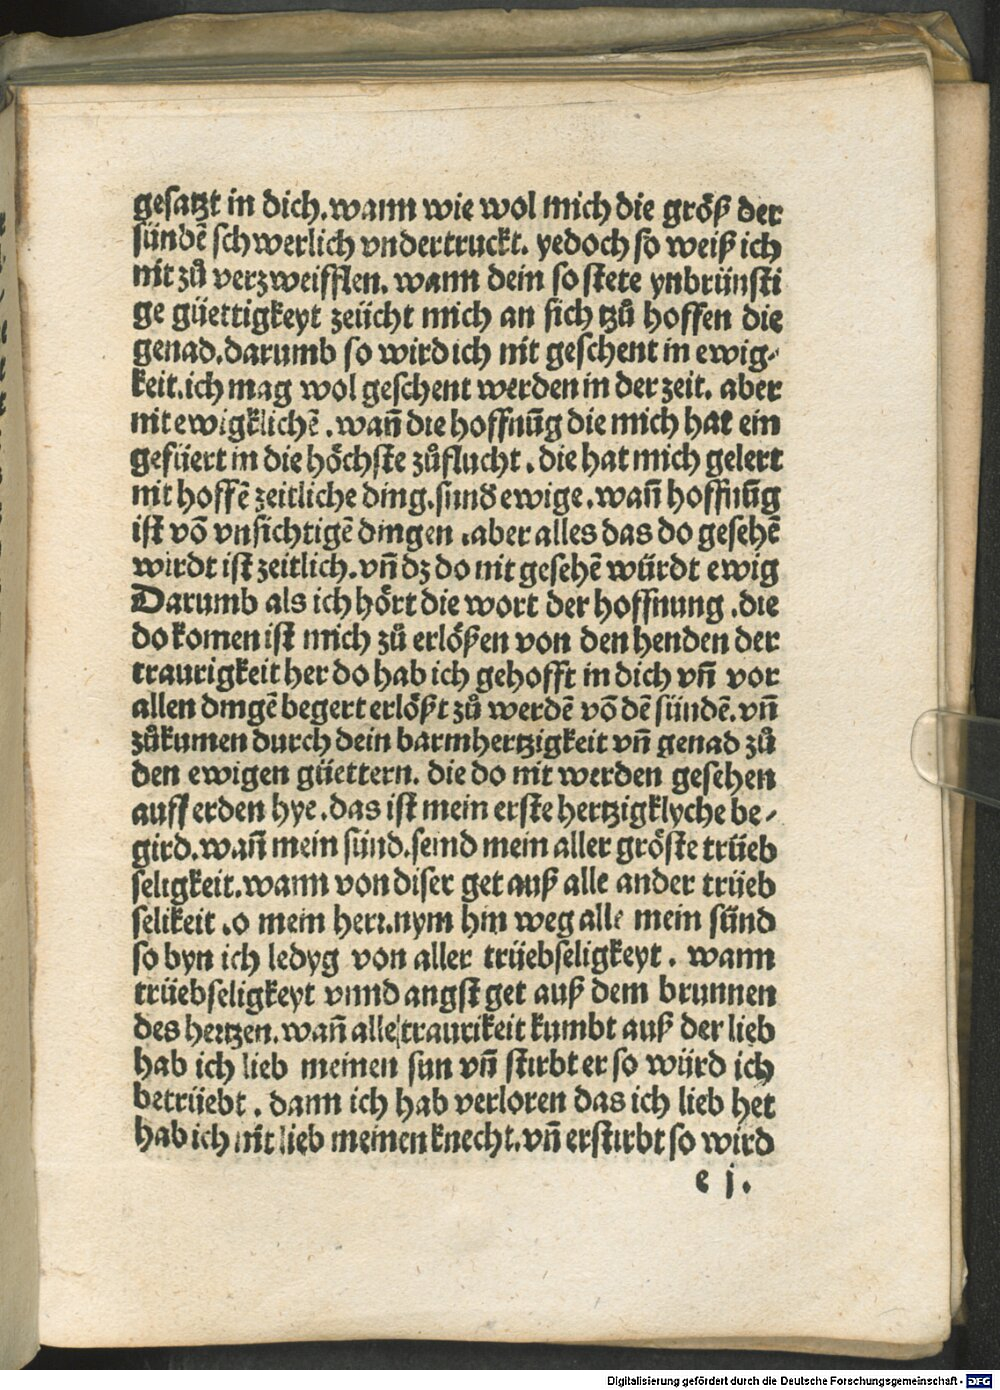 gesatzt in dich. wann wie wol mich die größ der
sündē schwerlich vndertruckt. yedoch so weiß ich
nit zů verzweifflen. wann dein so stete ynbrünsti
ge güettigkeyt zeücht mich an sich tzů hoffen die
genad. darumb so wird ich nit geschent in ewig⸗
keit. ich mag wol geschent werden in der zeit. aber
nit ewigklichē. wañ die hoffnūg die mich hat ein
gefüert in die höchste zůflucht. die hat mich gelert
nit hoffē zeitliche ding. sunđ ewige. wañ hoffnūg
ist vō vnsichtigē dingen. aber alles das do gesehē
wirdt ist zeitlich. vñ dz do nit gesehē würdt ewig
Darumb als ich hört die wort der hoffnung. die
do komen ist mich zů erlößen von den henden der
traurigkeit her do hab ich gehofft in dich vñ vor
allen dingē begert erlößt zů werdē vō dē sündē. vñ
zůkumen durch dein barmhertzigkeit vñ genad zů
den ewigen güettern. die do nit werden gesehen
auff erden hye. das ist mein erste hertzigklyche be⸗
gird. wañ mein sünd. seind mein aller gröste trüeb
seligkeit. wann von diser get auß alle ander trüeb
selikeit. o mein herr. nym hin weg alle mein sünd
so byn ich ledyg von aller trüebseligkeyt. wann
trüebseligkeyt vnnd angst get auß dem brunnen
des hertzen. wañ alle traurikeit kumbt auß der lieb
hab ich lieb meinen sun vñ stirbt er so würd ich
betrüebt. dann ich hab verloren das ich lieb het
hab ich nit lieb meinen knecht. vñ erstirbt so wird
e j.
Digitalisierung gefördert durch die Deutsche Forschungsgemeinschaft - DFG